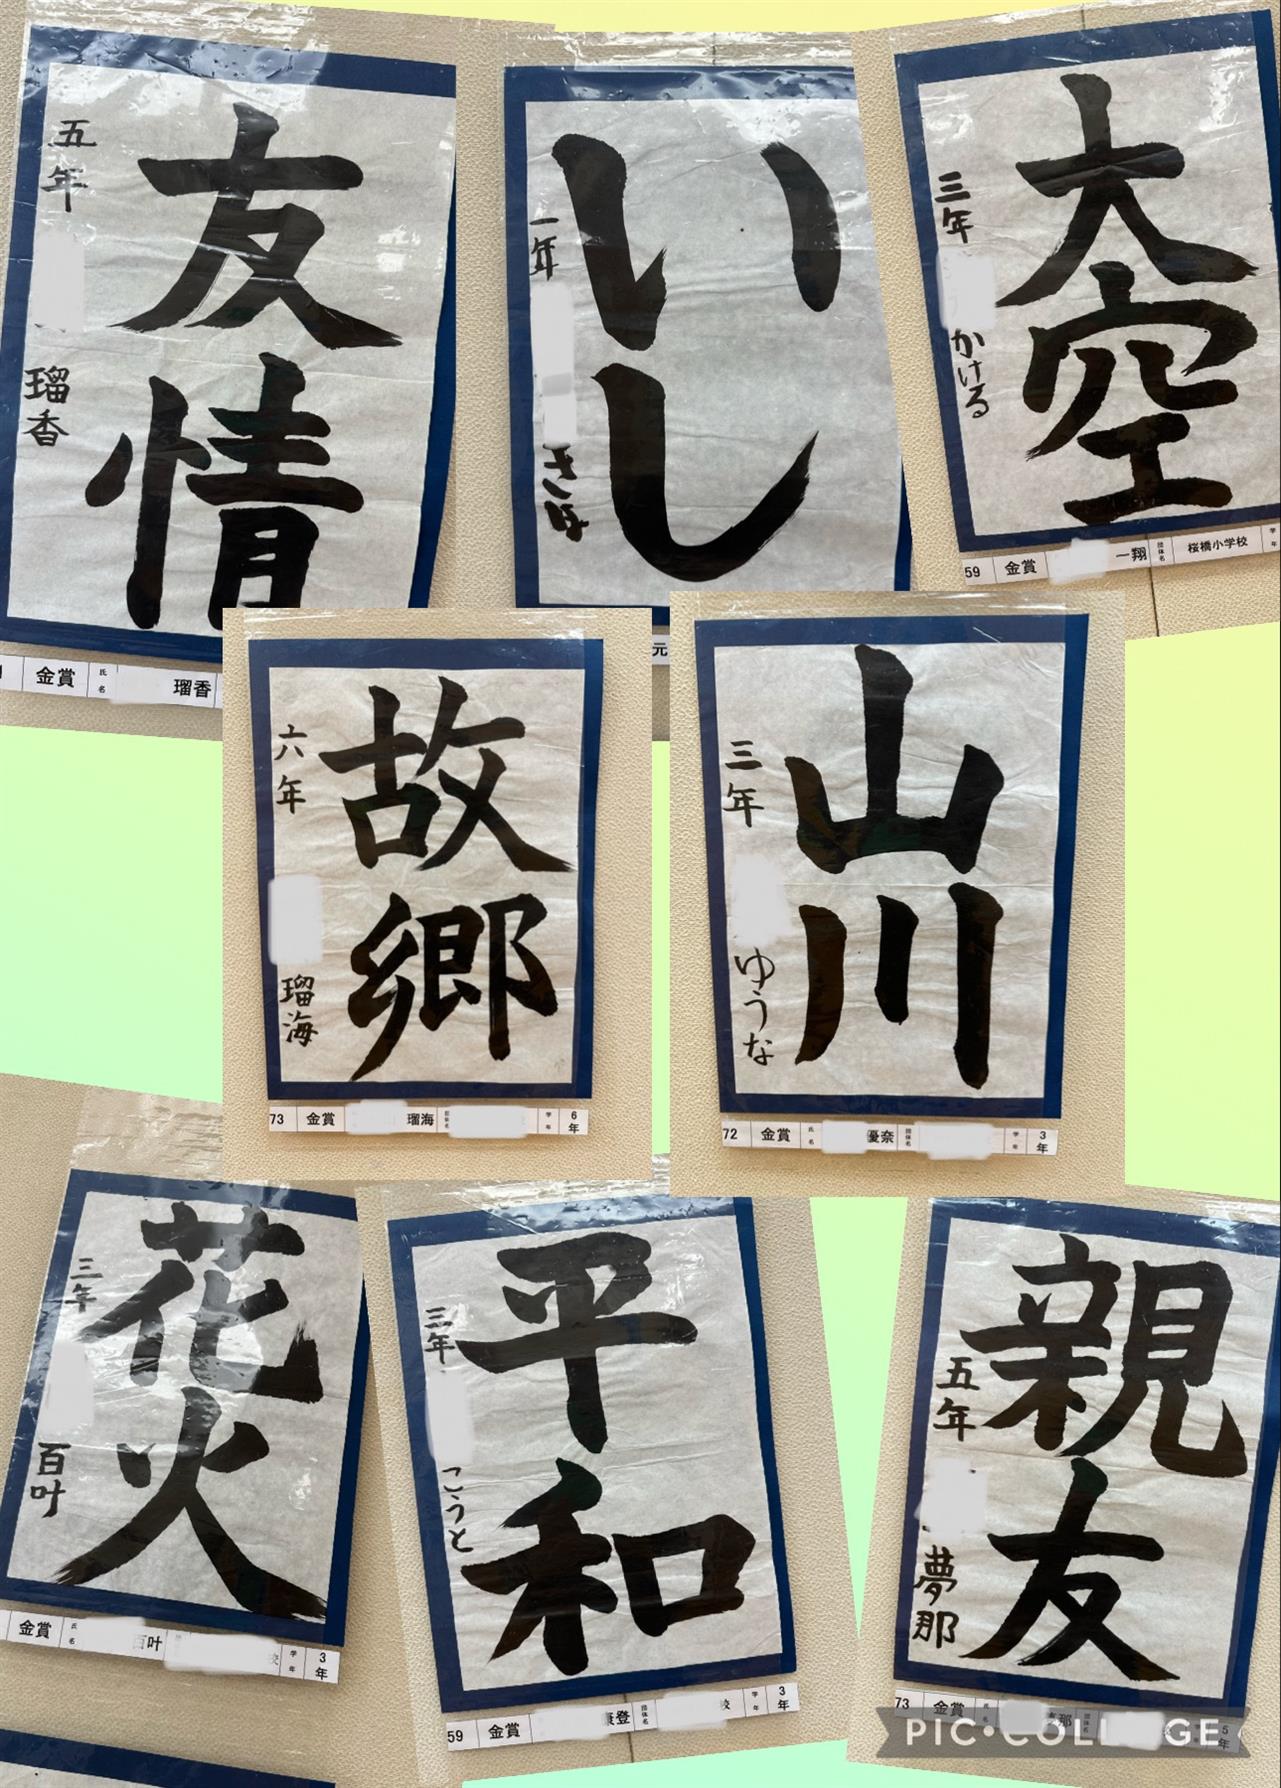 友情
五年
瑠香
金賞
氏名
瑠香
いし
一年
きほ
元
大空
三年
かける
59 金賞 一翔 団体名 桜橋小学校 学年
故郷
六年
瑠海
73 金賞 瑠海 団体名 学年 6年
山川
三年
ゆうな
72 金賞 氏名 優奈 団体名 学年 3年
花火
三年
百叶
金賞 氏名 百叶 校 学年 3年
平和
三年
こうと
59 金賞 康登 団体名 校 学年 3年
親友
五年
夢那
73 金賞 氏名 那 5年
PIC•COLLAGE